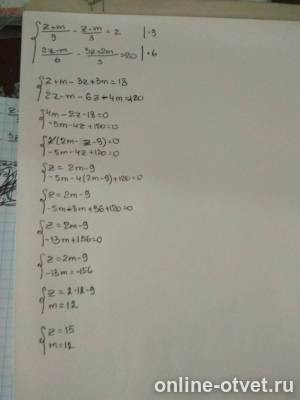 (z+m)/9 - (z-m)/3 = 2 | ·9
(2z-m)/6 - (3z+2m)/3 = -20 | ·6
z+m-3z+3m=18
2z-m-6z-4m=-120
4m-2z-18=0
-5m-4z+120=0
2(2m-z-9)=0
-5m-4z+120=0
z=2m-9
-5m-4(2m-9)+120=0
z=2m-9
-5m-8m+36+120=0
z=2m-9
-13m+156=0
z=2m-9
-13m=-156
z=2·12-9
m=12
z=15
m=12
online-otvet.ru